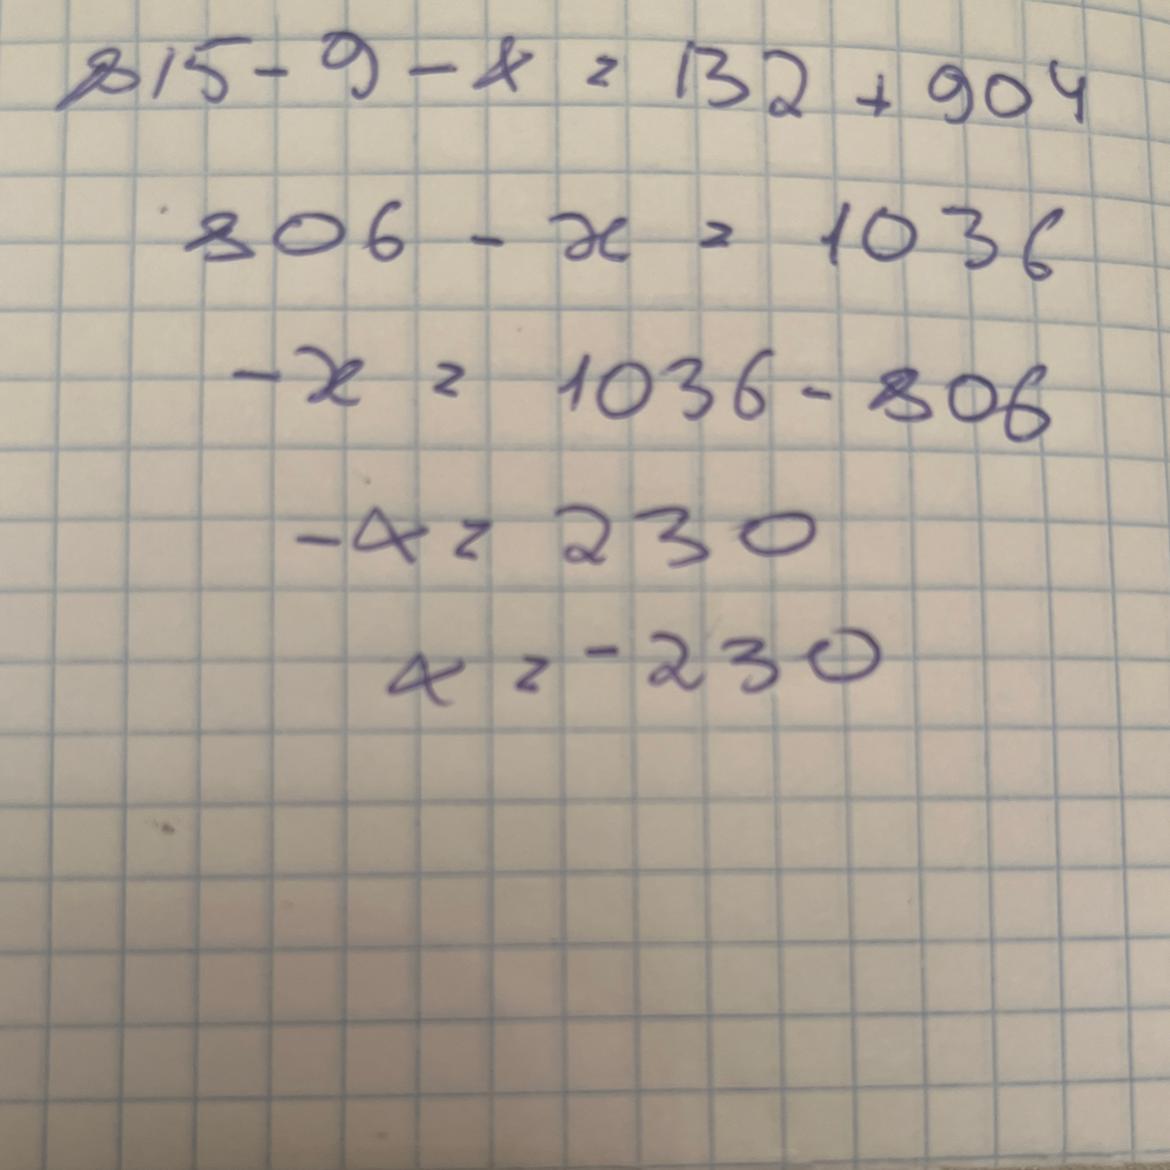 815 - 9 - x = 132 + 904
806 - x = 1036
-x = 1036 - 806
-x = 230
x = -230